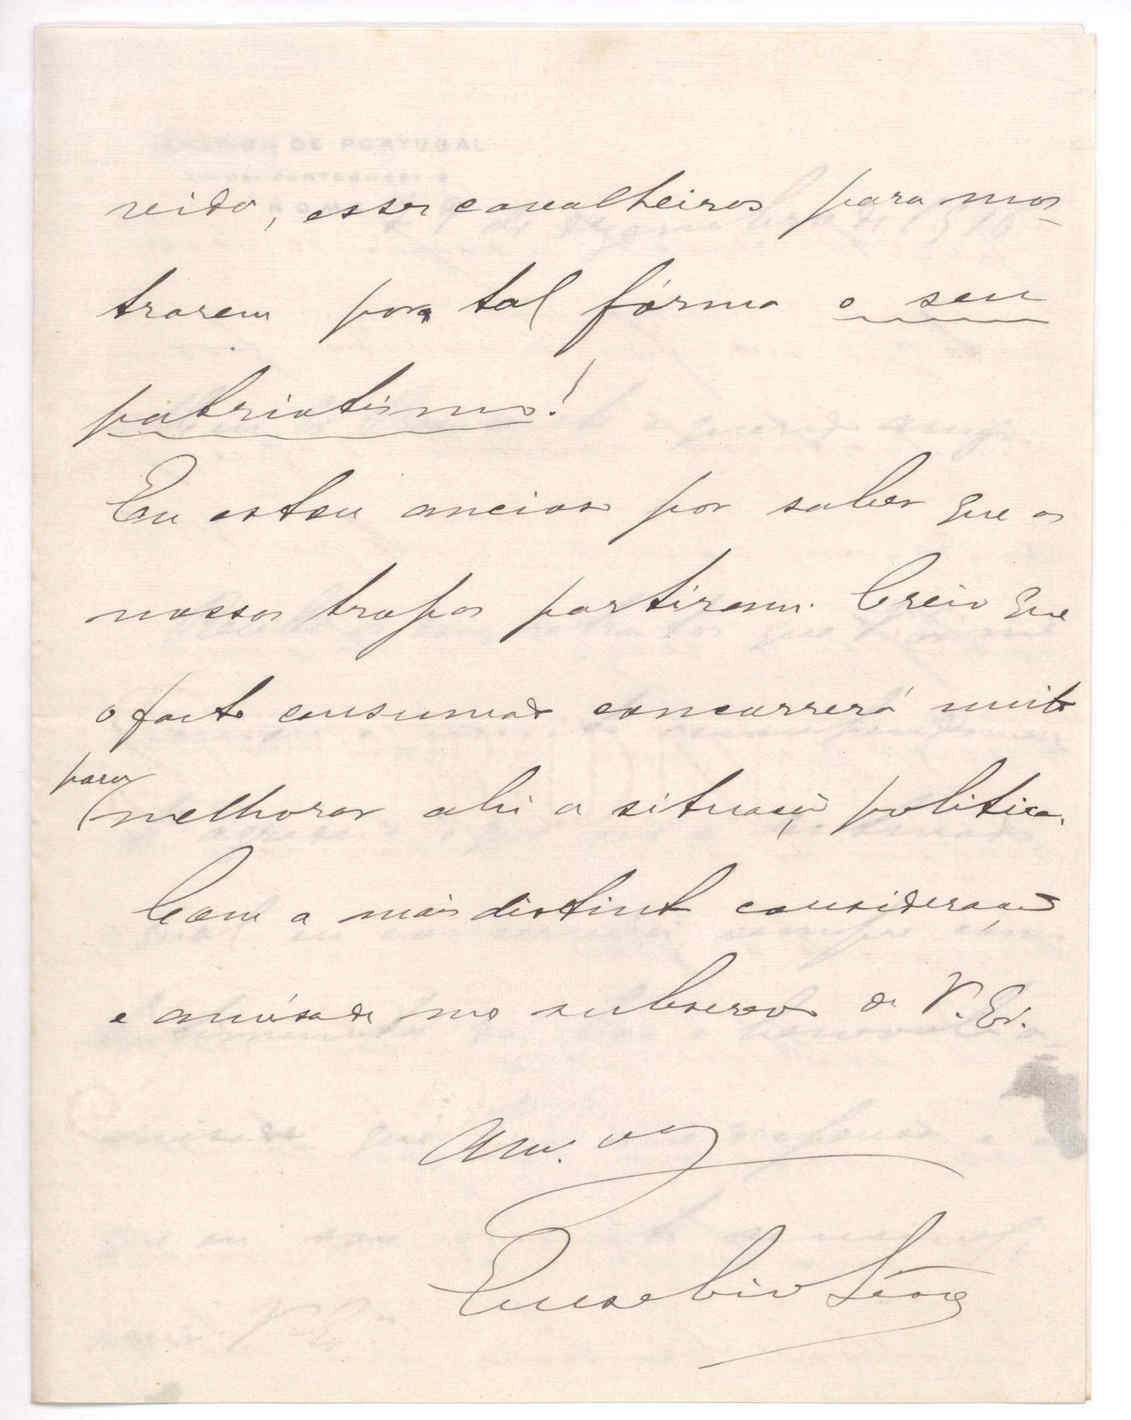 reido, esses cavalheiros para mos-
trarem por tal fórma o seu
patriotismo!
Eu estou ancioso por saber que as
nossas tropas partiram. Creio que
o facto consumado concorrerá muito
para
melhorar ahi a situação politica.
Com a mais distinta consideração
e amisade me subscrevo de V. Ex.
Am.
Eusebio Leão
DE PORTUGAL